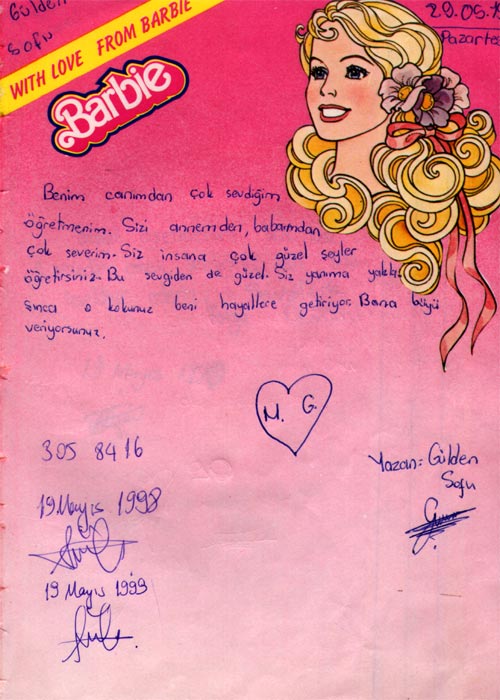 Gülden
Sofu
29.05.
Pazarte
WITH LOVE FROM BARBIE
Barbie
Benim canımdan çok sevdiğim
öğretmenim. Sizi annemden, babamdan
çok severim. Siz insana çok güzel şeyler
öğretirsiniz. Bu sevgiden de güzel. Siz yanıma yakla
şınca o kokunuz beni hayallere getiriyor. Bana büyü
veriyorsunuz.
M. G.
305 8416
Yazan: Gülden
Sofu
19 Mayıs 1998
19 Mayıs 1999